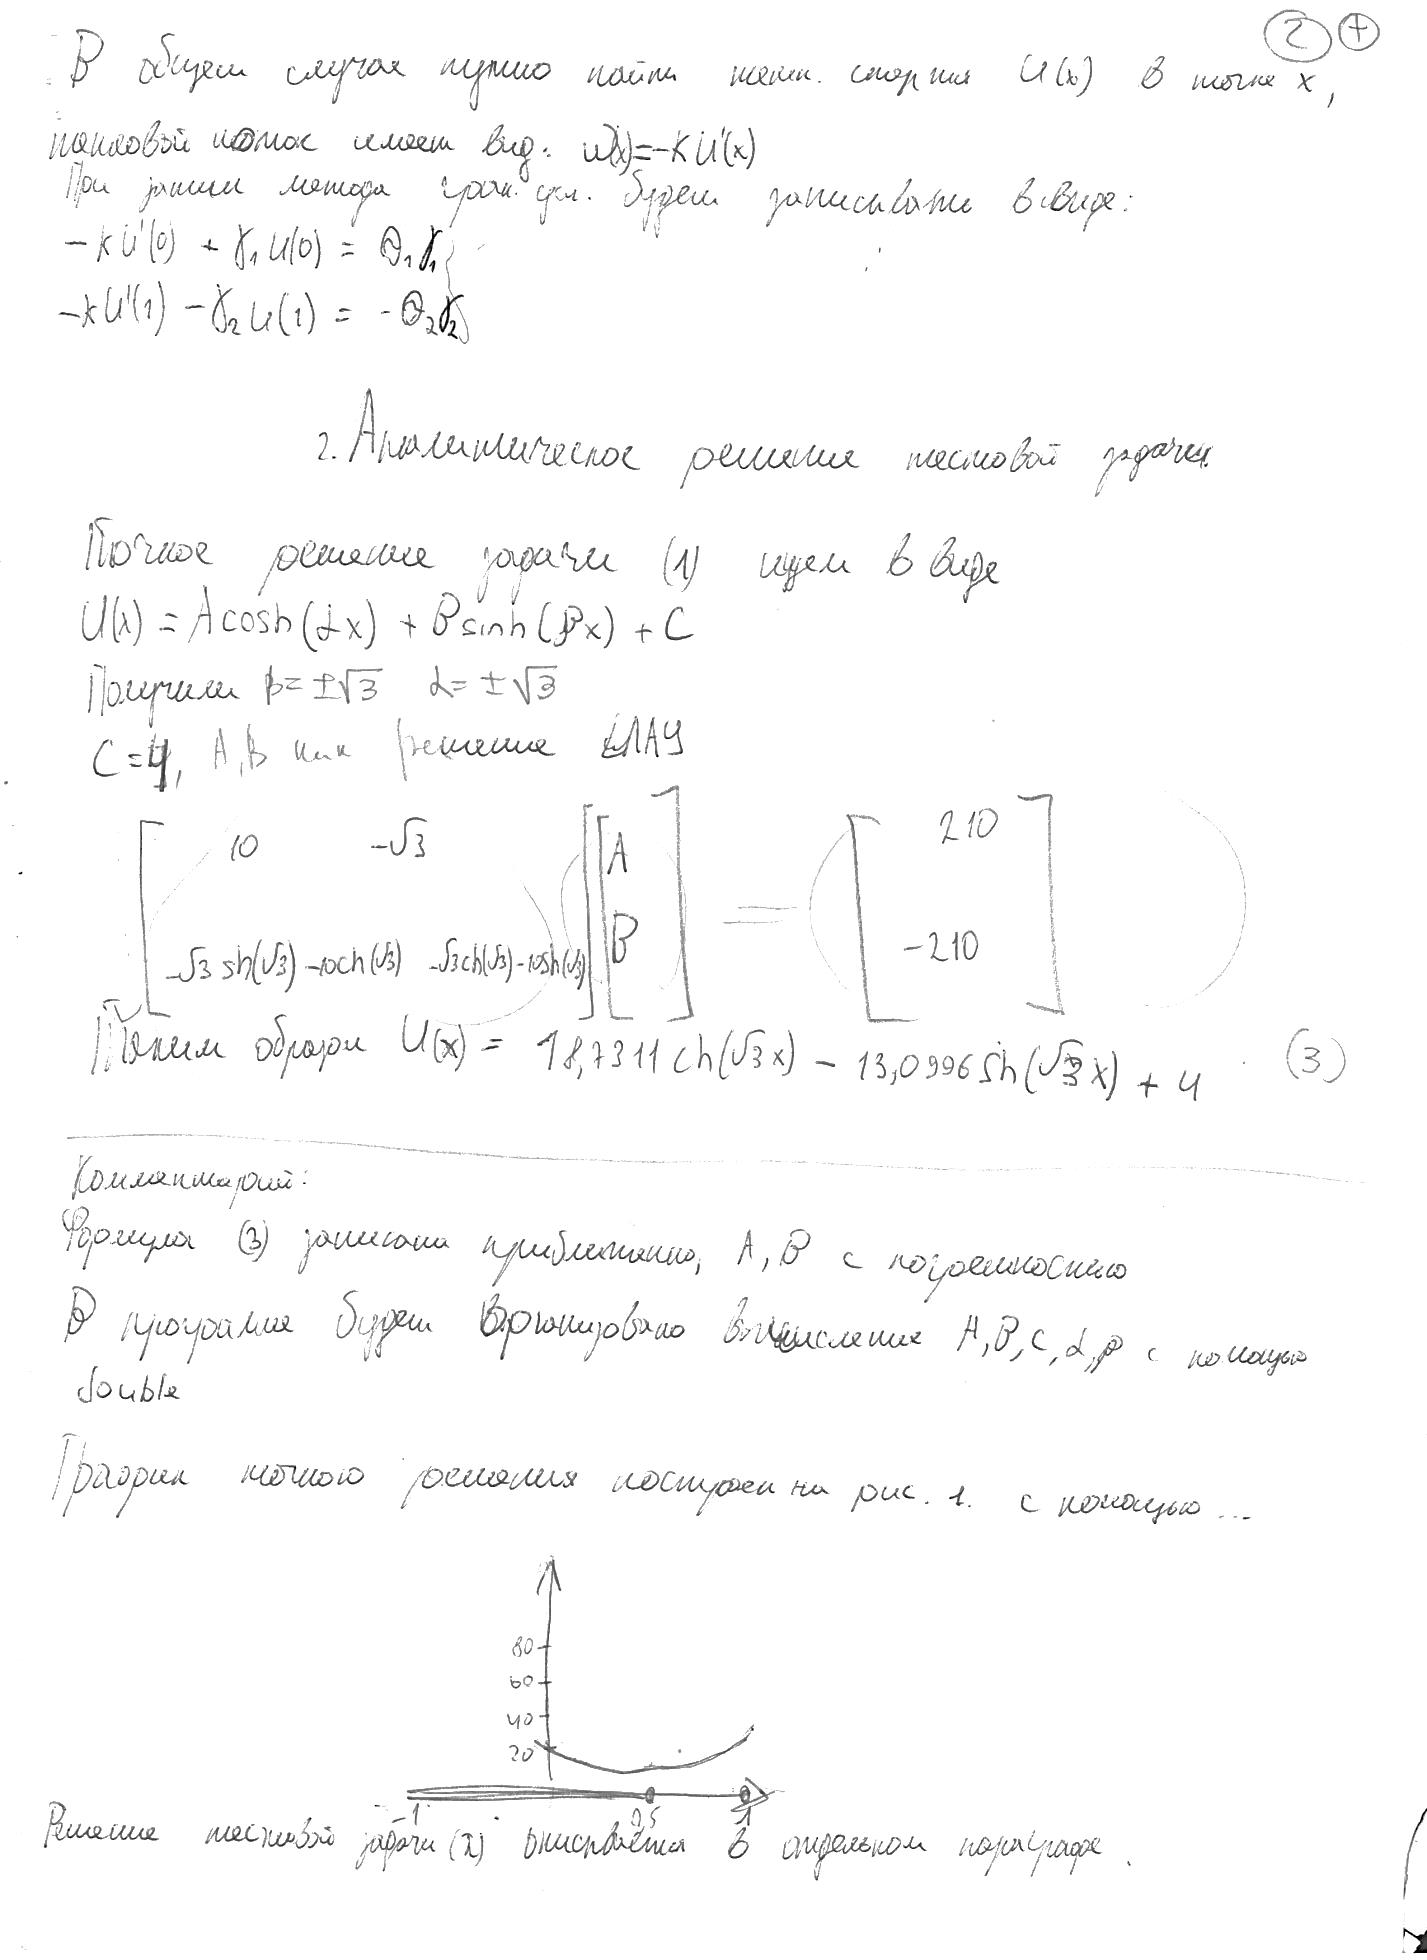 2 +
В общем случае нужно найти темп. стержня U(x) в точке x,
тепловой поток имеет вид: w(x)=-kU'(x)
При записи метода гран. усл. будем записывать в виде:
-kU'(0) + γ₁U(0) = Θ₁γ₁
-kU'(1) - γ₂U(1) = -Θ₂γ₂
2. Аналитическое решение тестовой задачи
Точное решение задачи (1) ищем в виде
U(x) = A cosh(αx) + B sinh(βx) + C
Получили β=±√3 α=±√3
C=4, A,B как решение СЛАУ
[ 10 -√3 ] [ A ] = [ 210 ]
[ -√3 sh(√3) -10ch(√3) -√3ch(√3)-10sh(√3) ] [ B ] [ -210 ]
Таким образом U(x) = 18,7311 ch(√3x) - 13,0996 sh(√3x) + 4 (3)
Комментарий:
Формула (3) записана приближенно, A, B с погрешностью
В программе будет вычисление A, B, C, α, β с помощью
double
График точного решения построен на рис. 1. с помощью ...
80
60
40
20
-1 0,5 1
Решение тестовой задачи (2) описывается в отдельном параграфе.